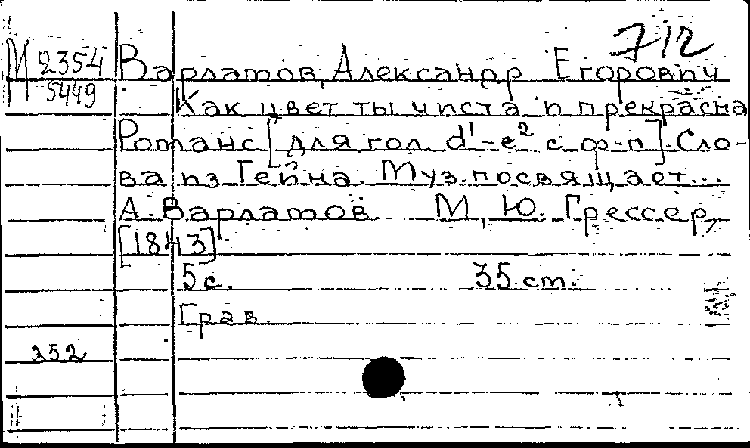 712
М 2354
5449
Варламов, Александр Егорович
Как цвет ты чиста и прекрасна
Романс [для гол. d¹-e² с ф-п]. Сло-
ва из Гейна. Муз. посвящает...
А. Варламов М., Ю. Грессер,
[1843]
5 с. 35 cm.
Грав.
252